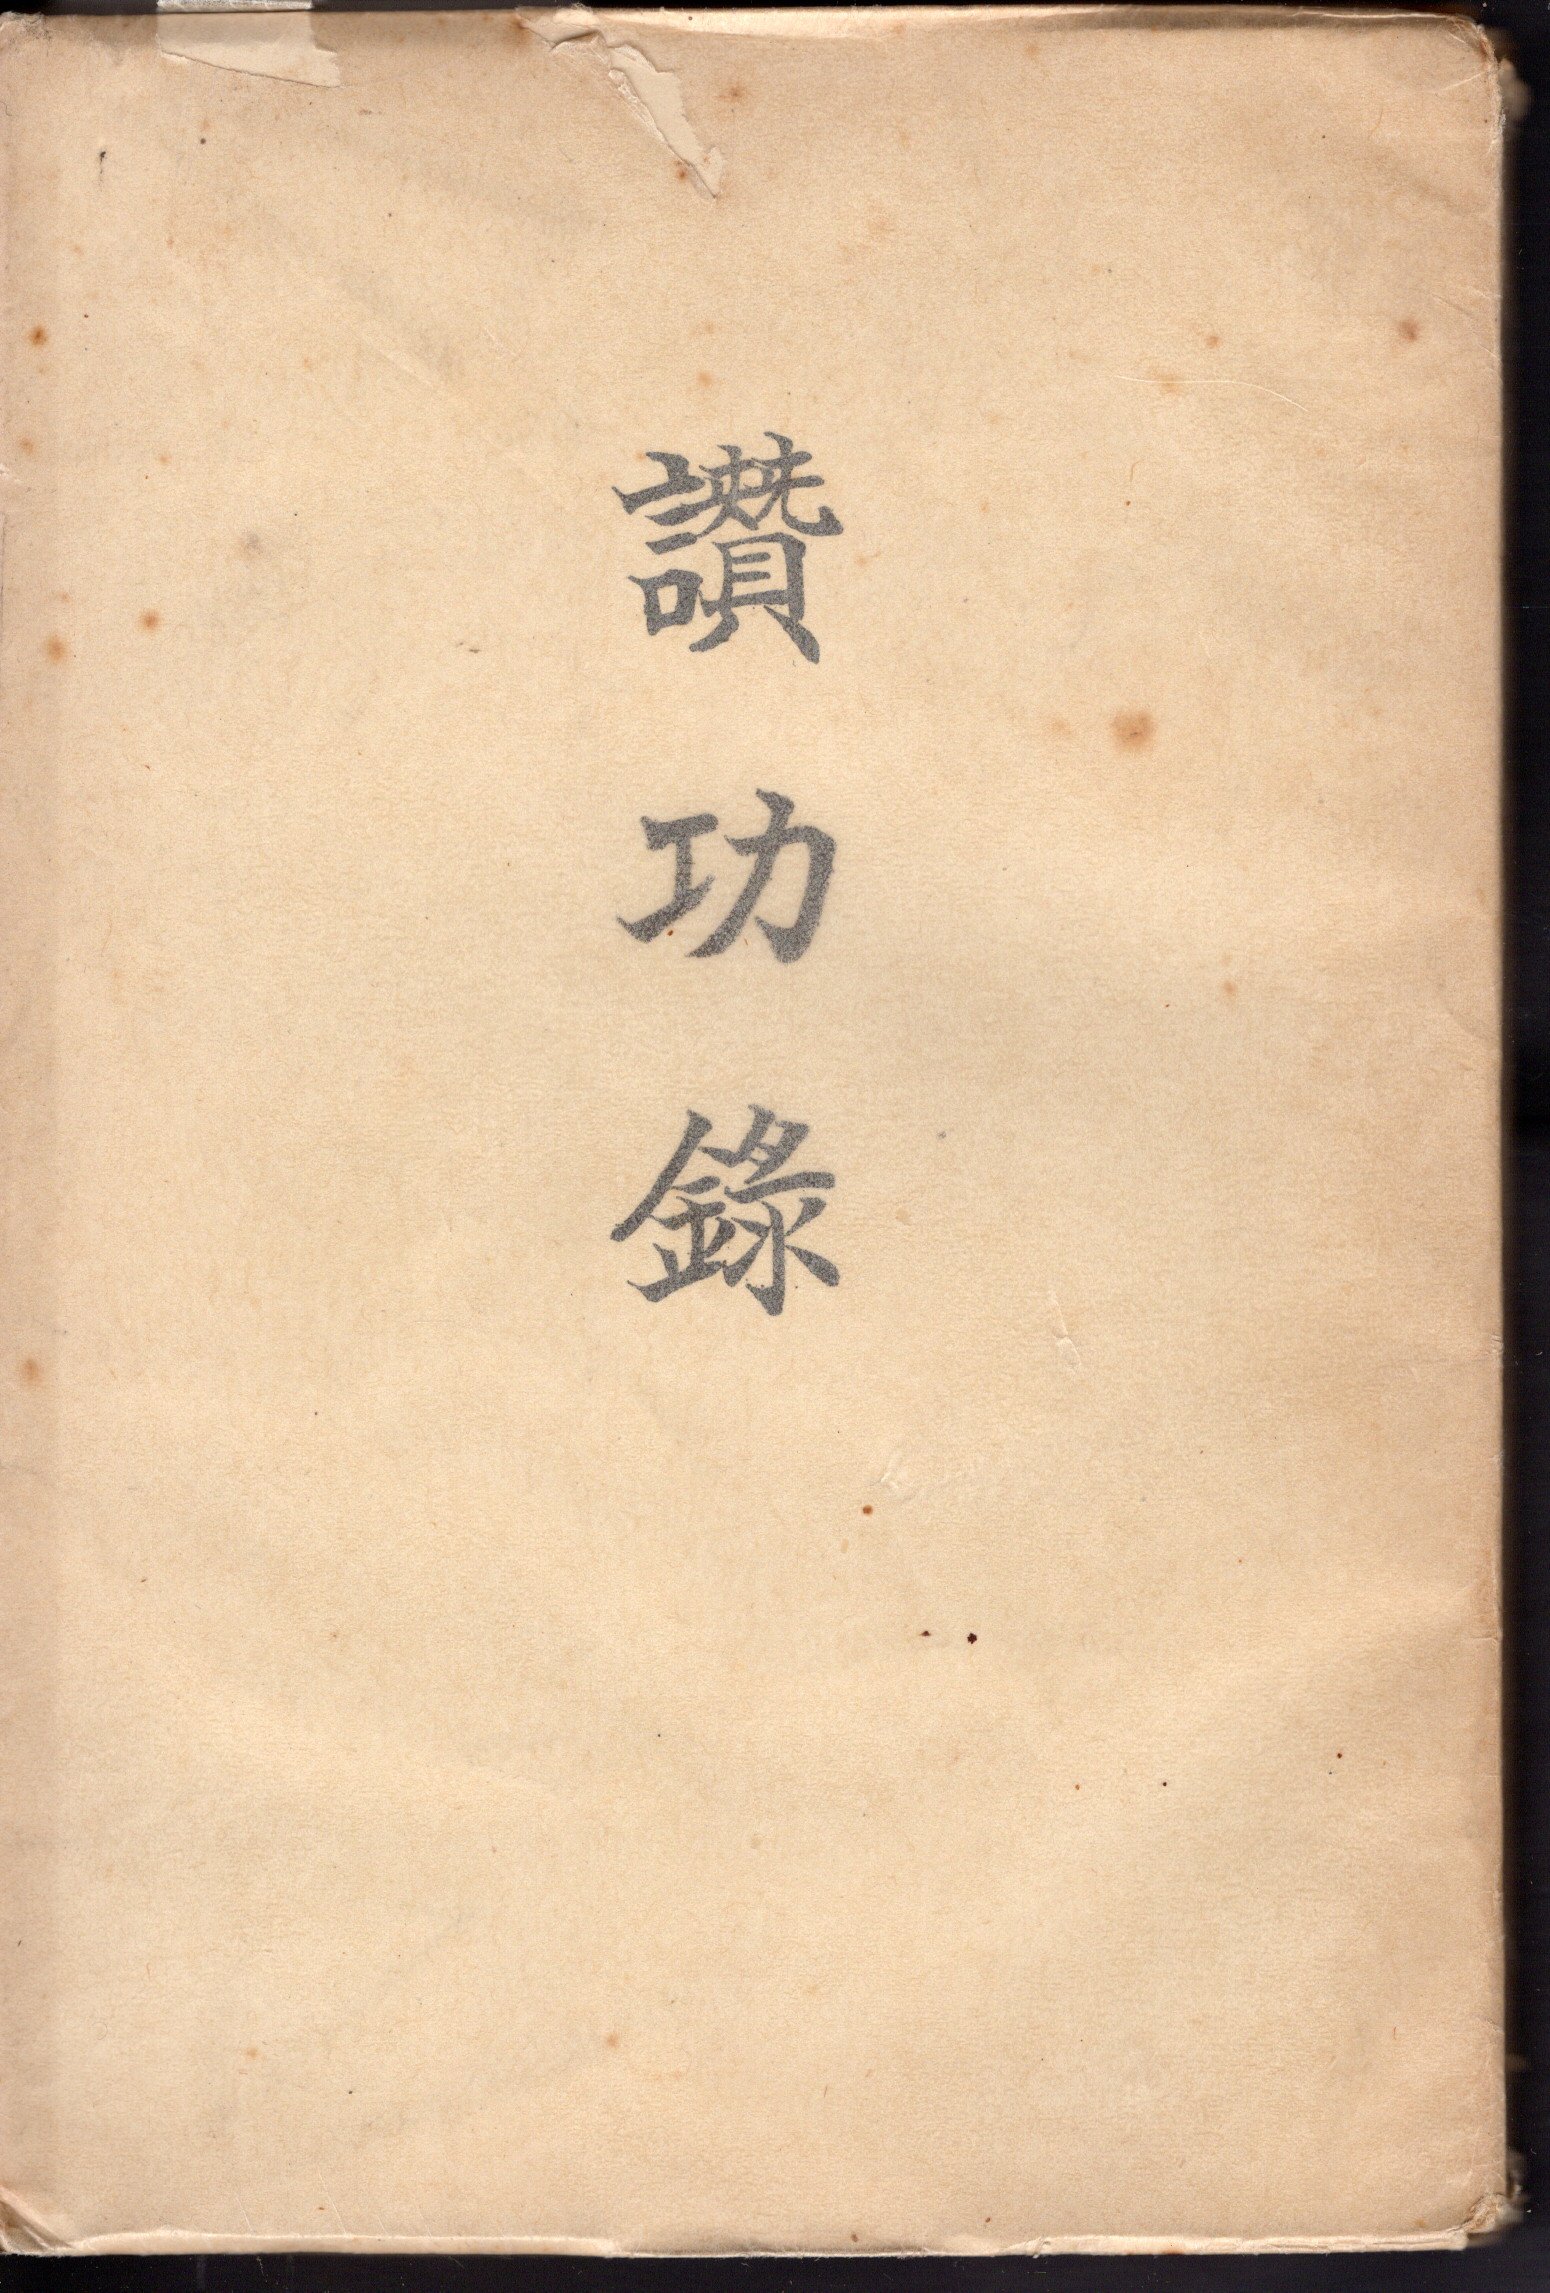 讚功錄